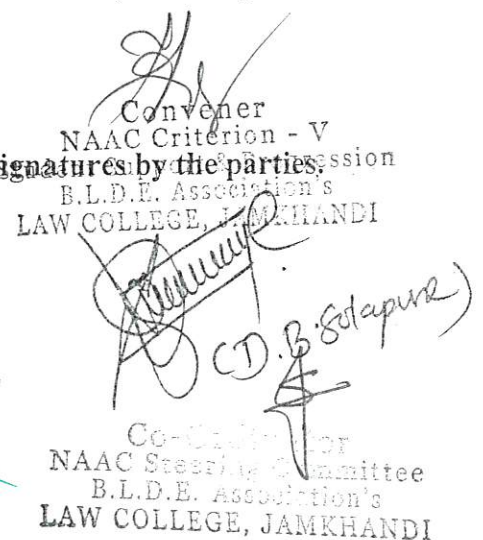 Convener
NAAC Criterion - V
ignatures by the parties.
B.L.D.E. Association's
LAW COLLEGE, JAMKHANDI
(D.B.Solapur)
NAAC Steering Committee
B.L.D.E. Association's
LAW COLLEGE, JAMKHANDI